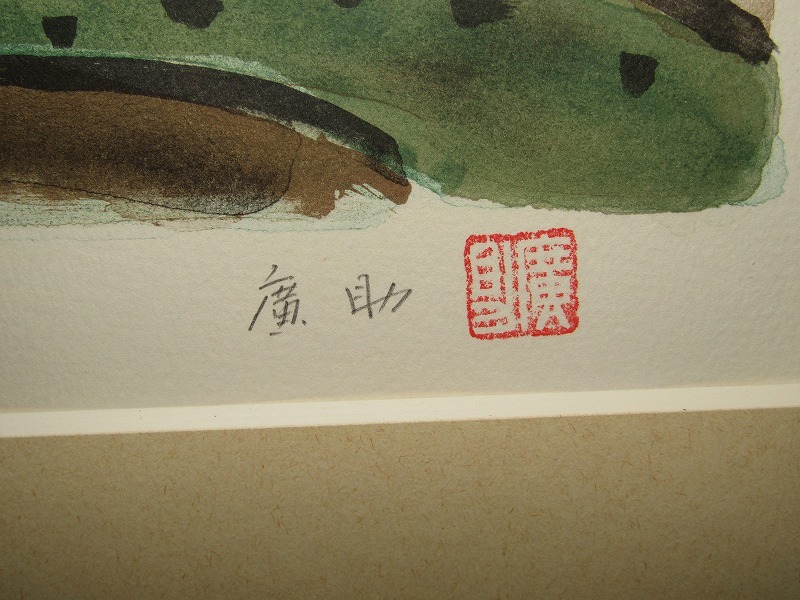 廣助
廣助